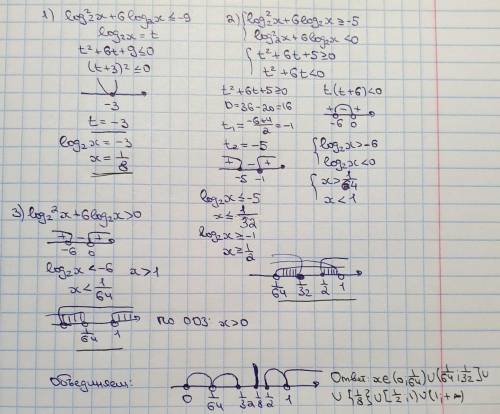 1) log₂²x+6log₂x≤-9
log₂x=t
t²+6t+9≤0
(t+3)²≤0
-3
t=-3
log₂x=-3
x=1/8
2) {log₂²x+6log₂x≥-5
log₂²x+6log₂x<0
{t²+6t+5≥0
t²+6t<0
t²+6t+5≥0
D=36-20=16
t₁=(-6+4)/2=-1
t₂=-5
+ - +
-5 -1
log₂x≤-5
x≤1/32
log₂x≥-1
x≥1/2
t(t+6)<0
+ - +
-6 0
{log₂x>-6
log₂x<0
{x>1/64
x<1
1/64 1/32 1/2 1
3) log₂²x+6log₂x>0
+ - +
-6 0
log₂x<-6 x>1
x<1/64
1/64 1
по ОДЗ: x>0
Объединяем:
0 1/64 1/32 1/8 1/2 1
Ответ: x∈(0;1/64)∪(1/64;1/32]∪
∪{1/8}∪[1/2;1)∪(1;+∞)